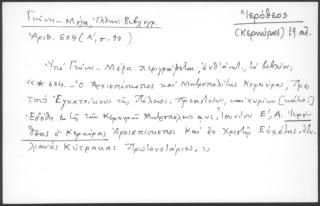 Γκίνη - Μέξα, Ἑλλην. Βιβλιογρ.
Ἀριθ. 604 (Α', σ. 99)
Ἱερόθεος
(Κερκύρας) 19 αἰ.
Ὑπὸ Γκίνη - Μέξα περιγράφεται, , τὸ βιβλίον,
«* 604. - Ὁ Ἀρχιεπίσκοπος καὶ Μητροπολίτης Κερκύρας, Πρὸς
τοὺς Ἐγκατοίκους τῆς Πόλεως, Προαστείων, καὶ χωρίων
Ἐδόθη ἐκ τῆς τῶν Κερκύρων Μητροπόλεως , Ἰουνίου Ε', Α. Ἱερό-
θεος ὁ Κερκύρας Ἀρχιεπίσκοπος Καὶ ἐν Χριστῷ Εὐχέτης. Στυ-
λιανὸς Κύτρακας Πρωτονοτάριος.»